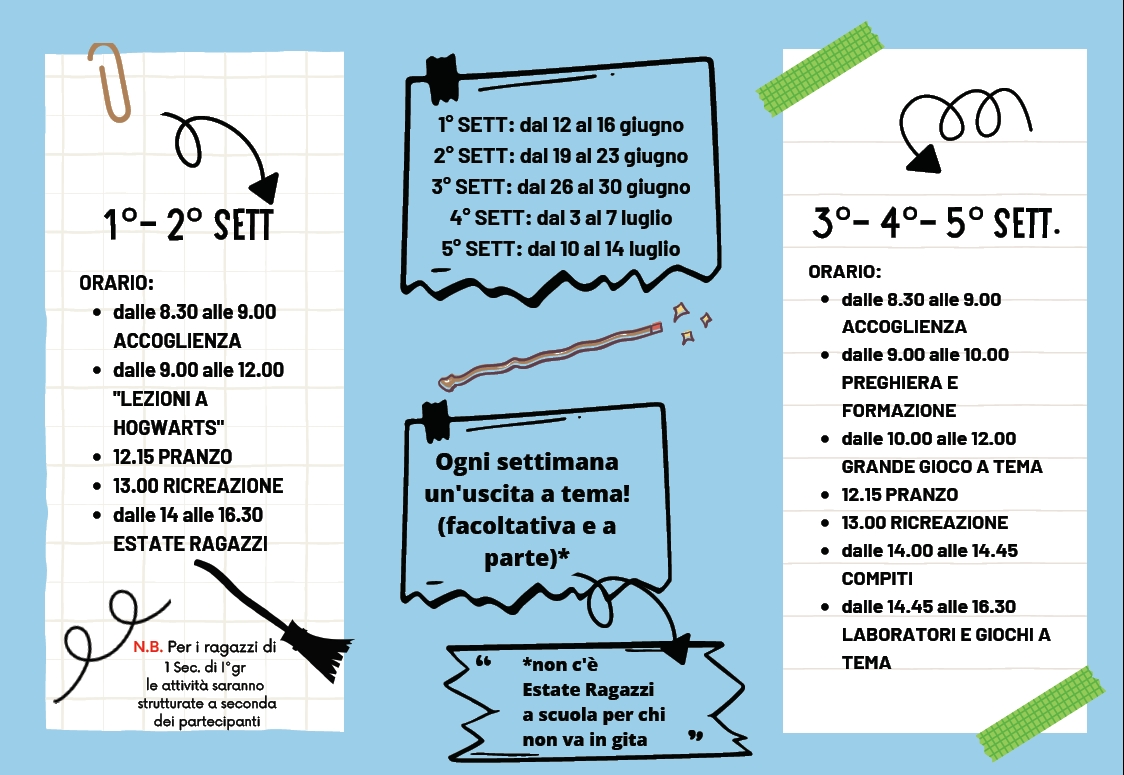 1°- 2° SETT
ORARIO:
• dalle 8.30 alle 9.00
ACCOGLIENZA
• dalle 9.00 alle 12.00
"LEZIONI A
HOGWARTS"
• 12.15 PRANZO
• 13.00 RICREAZIONE
• dalle 14 alle 16.30
ESTATE RAGAZZI
N.B. Per i ragazzi di
1 Sec. di I°gr
le attività saranno
strutturate a seconda
dei partecipanti
1° SETT: dal 12 al 16 giugno
2° SETT: dal 19 al 23 giugno
3° SETT: dal 26 al 30 giugno
4° SETT: dal 3 al 7 luglio
5° SETT: dal 10 al 14 luglio
Ogni settimana
un'uscita a tema!
(facoltativa e a
parte)*
“ *non c'è
Estate Ragazzi
a scuola per chi
non va in gita ”
3°- 4°- 5° SETT.
ORARIO:
• dalle 8.30 alle 9.00
ACCOGLIENZA
• dalle 9.00 alle 10.00
PREGHIERA E
FORMAZIONE
• dalle 10.00 alle 12.00
GRANDE GIOCO A TEMA
• 12.15 PRANZO
• 13.00 RICREAZIONE
• dalle 14.00 alle 14.45
COMPITI
• dalle 14.45 alle 16.30
LABORATORI E GIOCHI A
TEMA